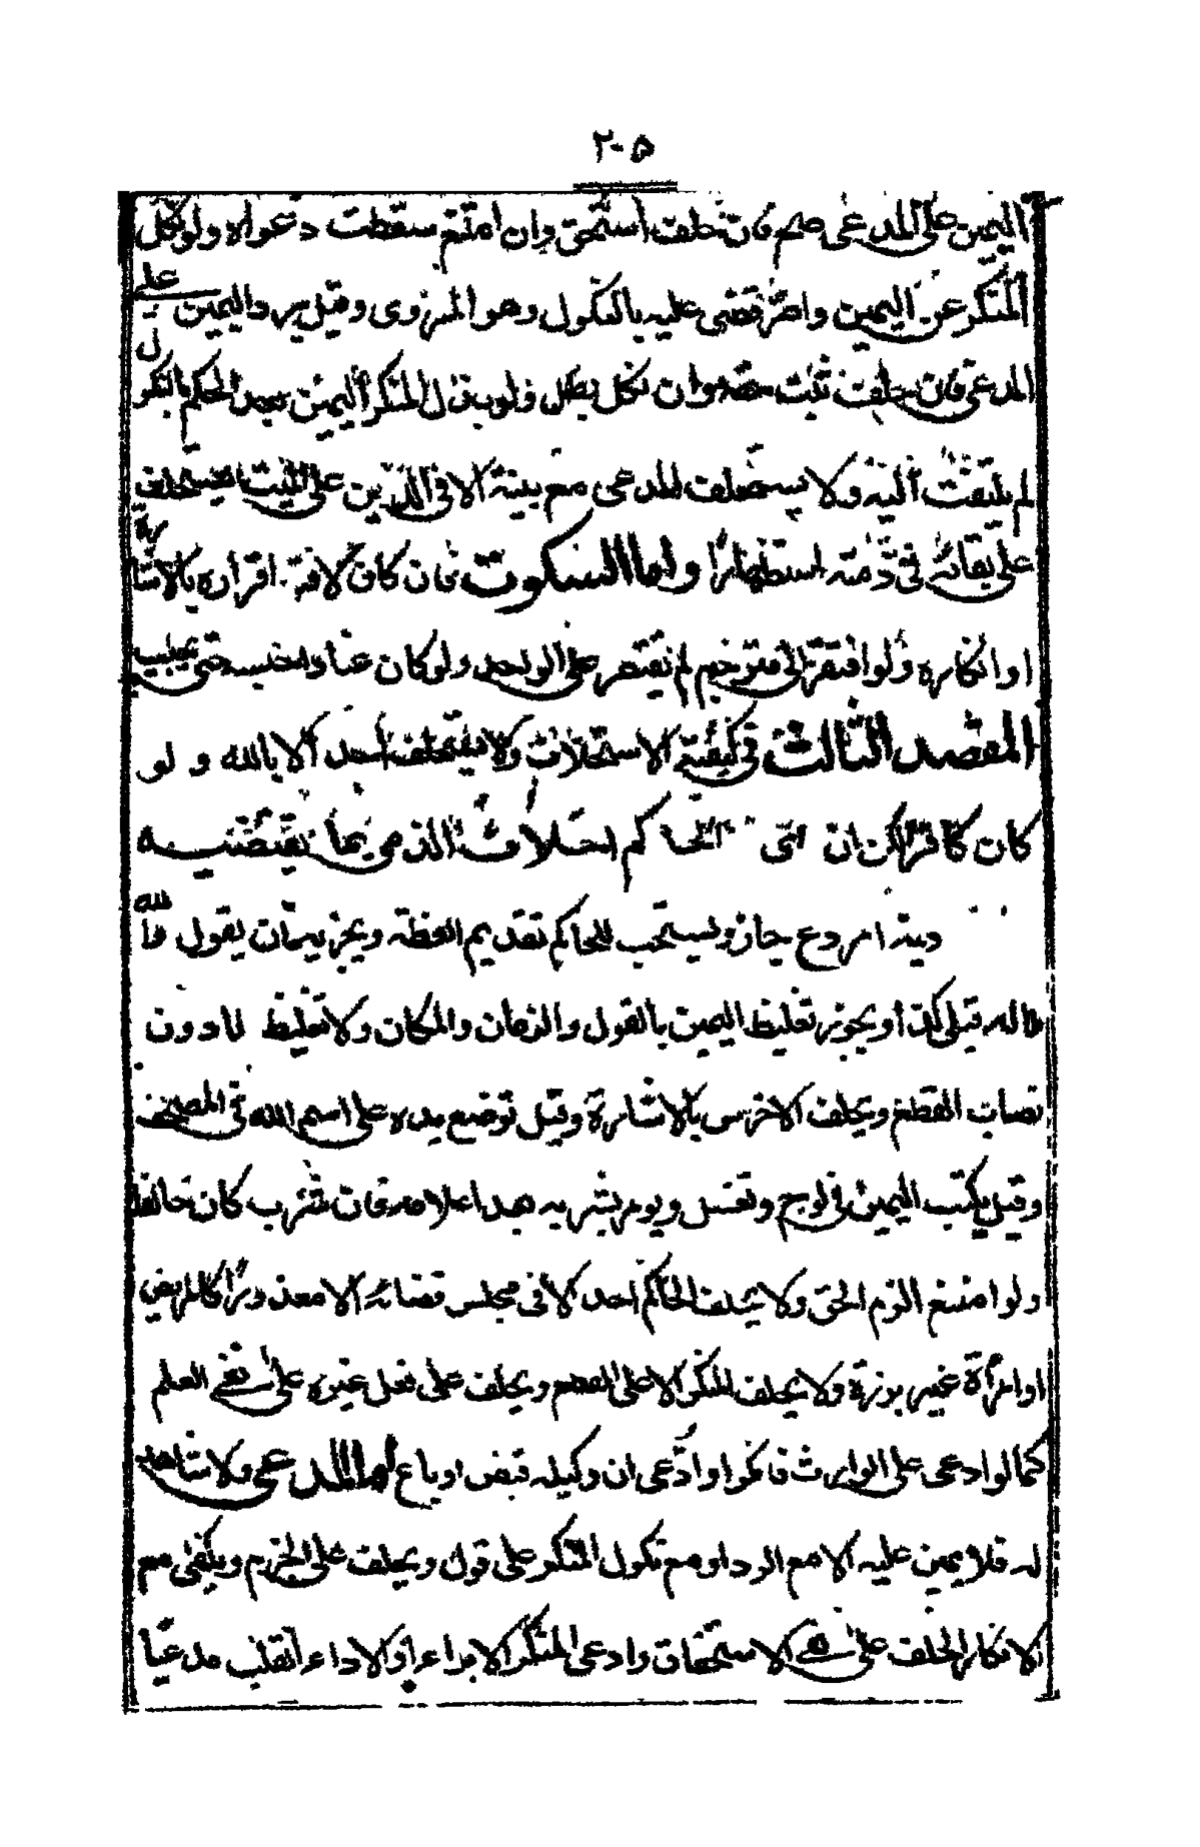 ٢٠٥
اليمين على المدعى صح فان حلف استحق وان امتنع سقطت دعواه ولو نكل
المنكر عن اليمين واصر قضى عليه بالنكول وهو المروى وقيل يرد اليمين على
المدعى فان حلف ثبت حقه وان نكل بطل ولو بذل المنكر اليمين بعد الحكم بالنكول
لم يلتفت اليه ولا يستحلف المدعى مع بينة الا فى الدين على الميت يستحلف
على بقائه فى ذمته استظهارا واما السكوت فان كان لافة اقراره بالاشارة
او انكاره ولو افتقر الى مترجم لم يقتصر على الواحد ولو كان عنادا حبسه حتى يجيب
المقصد الثالث فى كيفية الاستحلاف ولا يستحلف احد الا بالله و لو
كان كافرا لكن ان راى الحاكم احلاف الذمى بما يقتضيه
دينه اردع جاز ويستحب للحاكم تقديم العظة ويجزيه ان يقول والله
ماله قبلى كذا ويجوز تغليظ اليمين بالقول والزمان والمكان ولا تغليظ لما دون
نصاب القطع ويحلف الاخرس بالاشارة وقيل توضع يده على اسم الله فى المصحف
وقيل يكتب اليمين فى لوح وتغسل ويومر بشربه بعد اعلامه فان شرب كان حالفا
ولو امتنع الزم الحق ولا يحلف الحاكم احد الا فى مجلس قضائه الا معذورا كالمريض
او امراة غير برزة ولا يحلف المنكر الا على القطع ويحلف على فعل غيره على نفى العلم
كما لو ادعى على الوارث فانكر او ادعى ان وكيله قبض او باع اما المدعى ولا شاهد
له فلا يمين عليه الا مع الرد او مع نكول المنكر على قول ويحلف على الجزم ويكفى مع
الانكار الحلف على نفى الاستحقاق وادعى المنكر الابراء او الاداء انقلب مدعيا